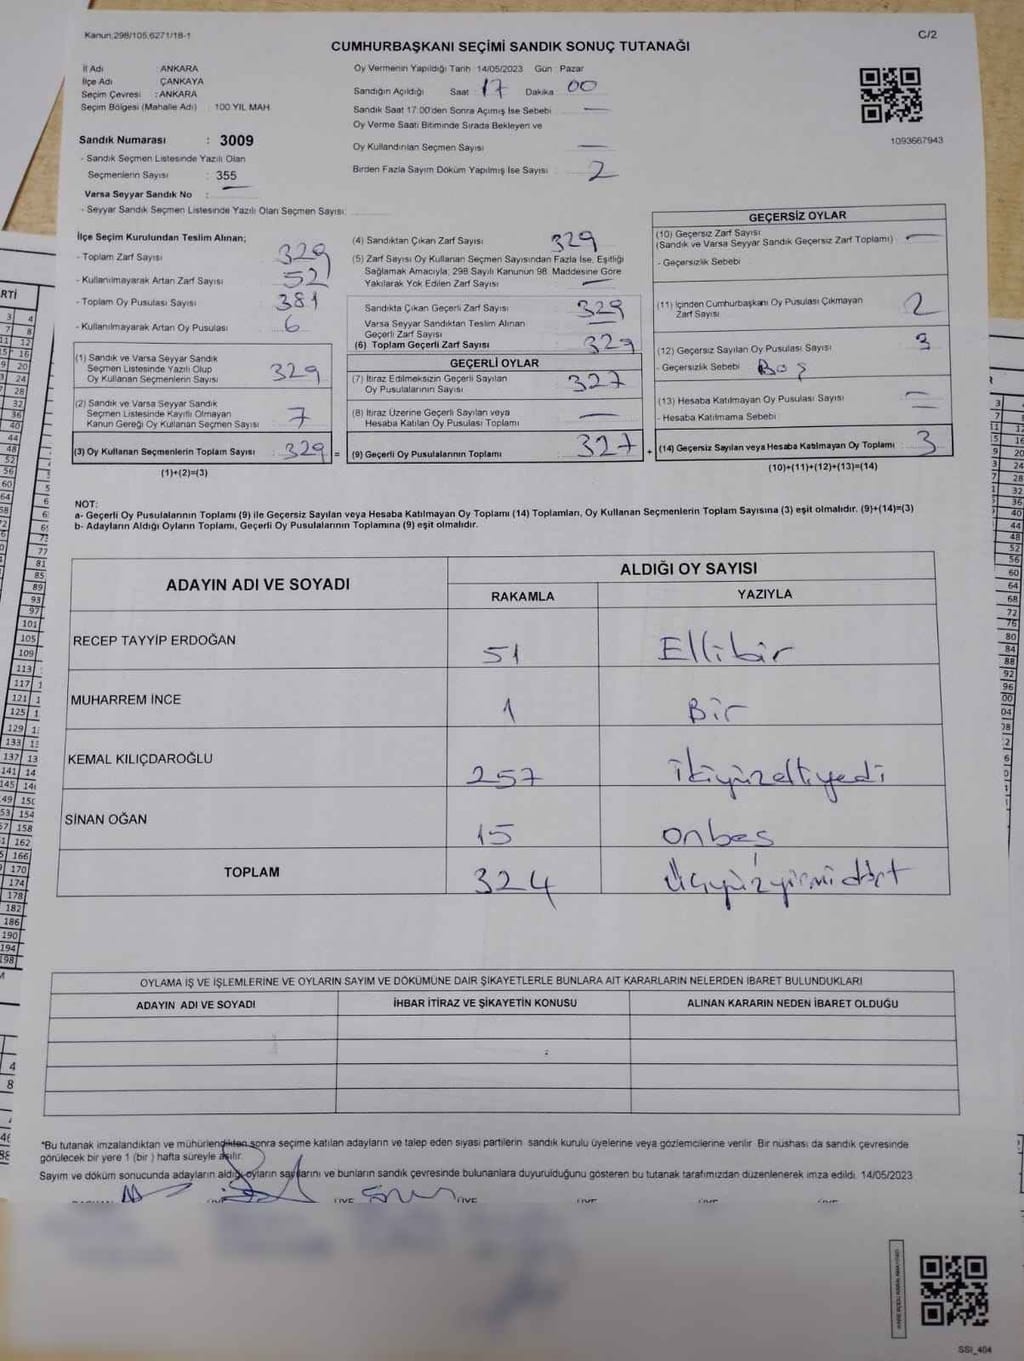 Kanun,298/105,6271/18-1
C/2
CUMHURBAŞKANI SEÇİMİ SANDIK SONUÇ TUTANAĞI
İl Adı : ANKARA
İlçe Adı : ÇANKAYA
Seçim Çevresi : ANKARA
Seçim Bölgesi (Mahalle Adı) : 100 YIL MAH
Sandık Numarası : 3009
- Sandık Seçmen Listesinde Yazılı Olan
Seçmenlerin Sayısı : 355
Varsa Seyyar Sandık No : —
- Seyyar Sandık Seçmen Listesinde Yazılı Olan Seçmen Sayısı:
Oy Vermenin Yapıldığı Tarih : 14/05/2023 Gün : Pazar
Sandığın Açıldığı Saat : 17 Dakika : 00
Sandık Saat 17.00'den Sonra Açımış İse Sebebi : —
Oy Verme Saati Bitiminde Sırada Bekleyen ve
Oy Kullandırılan Seçmen Sayısı : —
Birden Fazla Sayım Döküm Yapılmış İse Sayısı : 2
1093667943
İlçe Seçim Kurulundan Teslim Alınan;
- Toplam Zarf Sayısı : 329
- Kullanılmayarak Artan Zarf Sayısı : 52
- Toplam Oy Pusulası Sayısı : 381
- Kullanılmayarak Artan Oy Pusulası : 6
(1) Sandık ve Varsa Seyyar Sandık
Seçmen Listesinde Yazılı Olup
Oy Kullanan Seçmenlerin Sayısı : 329
(2) Sandık ve Varsa Seyyar Sandık
Seçmen Listesinde Kayıtlı Olmayan
Kanun Gereği Oy Kullanan Seçmen Sayısı : 7
(3) Oy Kullanan Seçmenlerin Toplam Sayısı : 329 =
(1)+(2)=(3)
(4) Sandıktan Çıkan Zarf Sayısı : 329
(5) Zarf Sayısı Oy Kullanan Seçmen Sayısından Fazla İse, Eşitliği
Sağlamak Amacıyla, 298 Sayılı Kanunun 98. Maddesine Göre
Yakılarak Yok Edilen Zarf Sayısı : —
Sandıkta Çıkan Geçerli Zarf Sayısı : 329
Varsa Seyyar Sandıktan Teslim Alınan
Geçerli Zarf Sayısı : —
(6) Toplam Geçerli Zarf Sayısı : 329
GEÇERLİ OYLAR
(7) İtiraz Edilmeksizin Geçerli Sayılan
Oy Pusulalarının Sayısı : 327
(8) İtiraz Üzerine Geçerli Sayılan veya
Hesaba Katılan Oy Pusulası Toplamı : —
(9) Geçerli Oy Pusulalarının Toplamı : 327 +
GEÇERSİZ OYLAR
(10) Geçersiz Zarf Sayısı : —
(Sandık ve Varsa Seyyar Sandık Geçersiz Zarf Toplamı)
- Geçersizlik Sebebi
(11) İçinden Cumhurbaşkanı Oy Pusulası Çıkmayan
Zarf Sayısı : 2
(12) Geçersiz Sayılan Oy Pusulası Sayısı : 3
- Geçersizlik Sebebi : Boş
(13) Hesaba Katılmayan Oy Pusulası Sayısı : —
- Hesaba Katılmama Sebebi : —
(14) Geçersiz Sayılan veya Hesaba Katılmayan Oy Toplamı : 3
(10)+(11)+(12)+(13)=(14)
NOT:
a- Geçerli Oy Pusulalarının Toplamı (9) ile Geçersiz Sayılan veya Hesaba Katılmayan Oy Toplamı (14) Toplamları, Oy Kullanan Seçmenlerin Toplam Sayısına (3) eşit olmalıdır. (9)+(14)=(3)
b- Adayların Aldığı Oyların Toplamı, Geçerli Oy Pusulalarının Toplamına (9) eşit olmalıdır.
ADAYIN ADI VE SOYADI
ALDIĞI OY SAYISI
RAKAMLA YAZIYLA
RECEP TAYYİP ERDOĞAN 51 Ellibir
MUHARREM İNCE 1 Bir
KEMAL KILIÇDAROĞLU 257 ikiyüzelliyedi
SİNAN OĞAN 15 onbeş
TOPLAM 324 Üçyüzyirmidört
OYLAMA İŞ VE İŞLEMLERİNE VE OYLARIN SAYIM VE DÖKÜMÜNE DAİR ŞİKAYETLERLE BUNLARA AİT KARARLARIN NELERDEN İBARET BULUNDUKLARI
ADAYIN ADI VE SOYADI İHBAR İTİRAZ VE ŞİKAYETİN KONUSU ALINAN KARARIN NEDEN İBARET OLDUĞU
*Bu tutanak imzalandıktan ve mühürlendikten sonra seçime katılan adayların ve talep eden siyasi partilerin sandık kurulu üyelerine veya gözlemcilerine verilir. Bir nüshası da sandık çevresinde
görülecek bir yere 1 (bir ) hafta süreyle asılır.
Sayım ve döküm sonucunda adayların aldığı oyların sayılarını ve bunların sandık çevresinde bulunanlara duyurulduğunu gösteren bu tutanak tarafımızdan düzenlenerek imza edildi. 14/05/2023
SSI_404